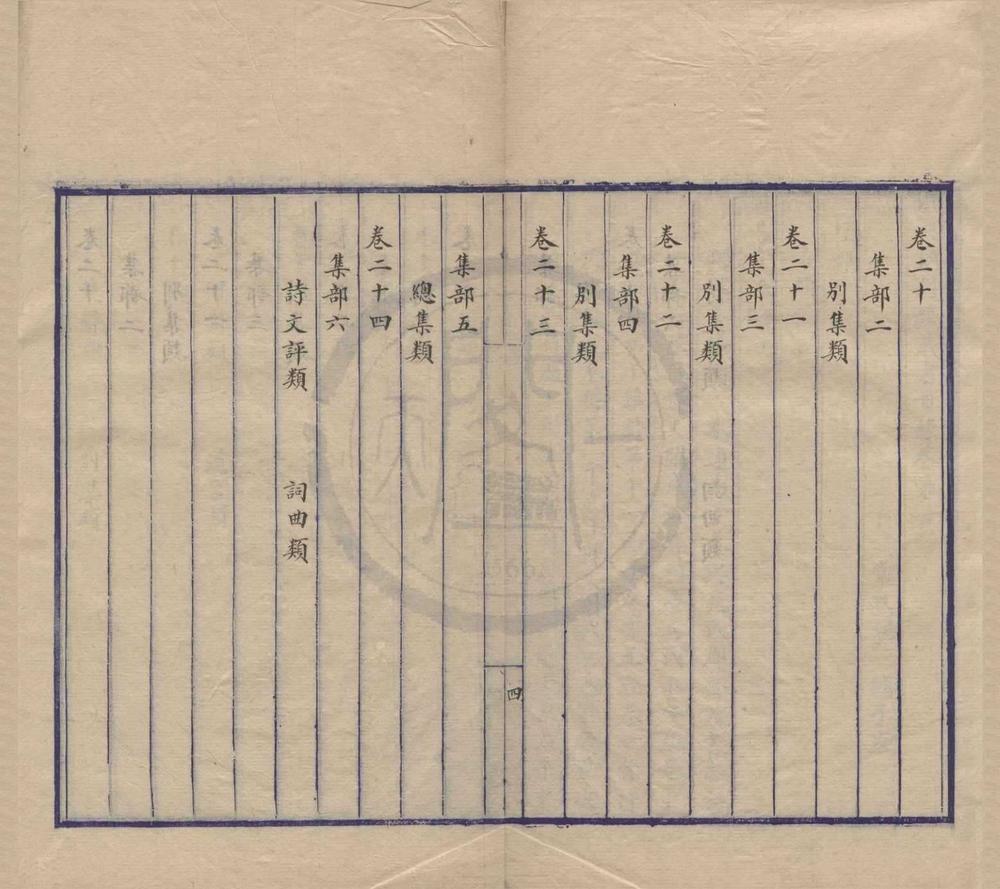 卷二十
集部二
別集類
卷二十一
集部三
別集類
卷二十二
集部四
別集類
卷二十三
四
集部五
總集類
卷二十四
集部六
詩文評類　詞曲類